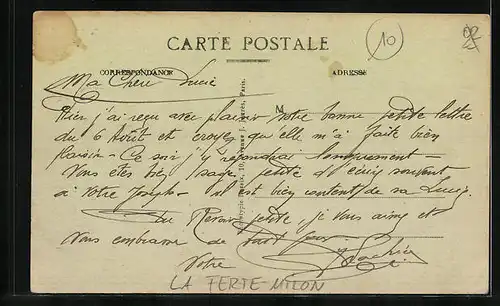 10
CARTE POSTALE
CORRESPONDANCE
ADRESSE
Ma Chère Lucie
Bien j'ai reçu avec plaisir votre bonne petite lettre
M
du 6 Août et croyez qu'elle m'a faite bien
plaisir - Ce soir j'y répondrai longuement -
Vous êtes bien sage, petite d'écrire souvent
à Votre Joseph - il est bien content de sa Lucie
Au Revoir petite, je vous aime et
Vous embrasse de tout
Votre
LA FERTE-MILON